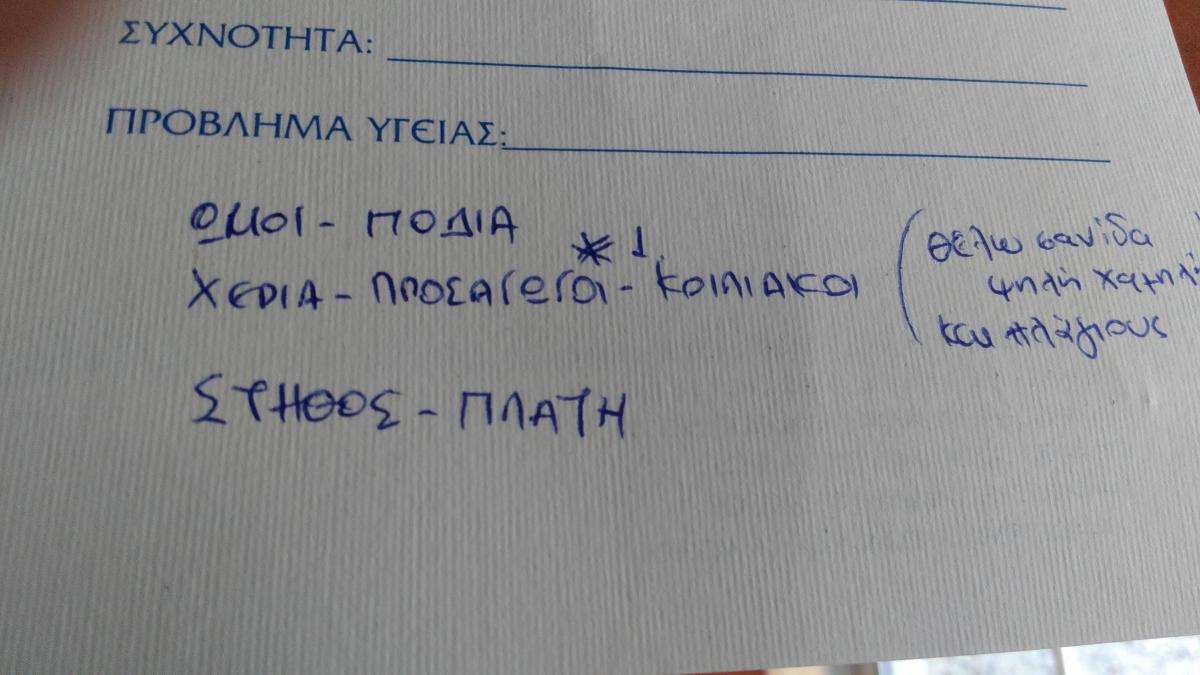 ΣΥΧΝΟΤΗΤΑ:
ΠΡΟΒΛΗΜΑ ΥΓΕΙΑΣ:
ΩΜΟΙ - ΠΟΔΙΑ
ΧΕΡΙΑ - ΠΡΟΣΑΓΩΓΟΙ *1 - ΚΟΙΛΙΑΚΟΙ
(θέλω σανίδα
ψηλή χαμηλή
και πλάγιους
ΣΤΗΘΟΣ - ΠΛΑΤΗ